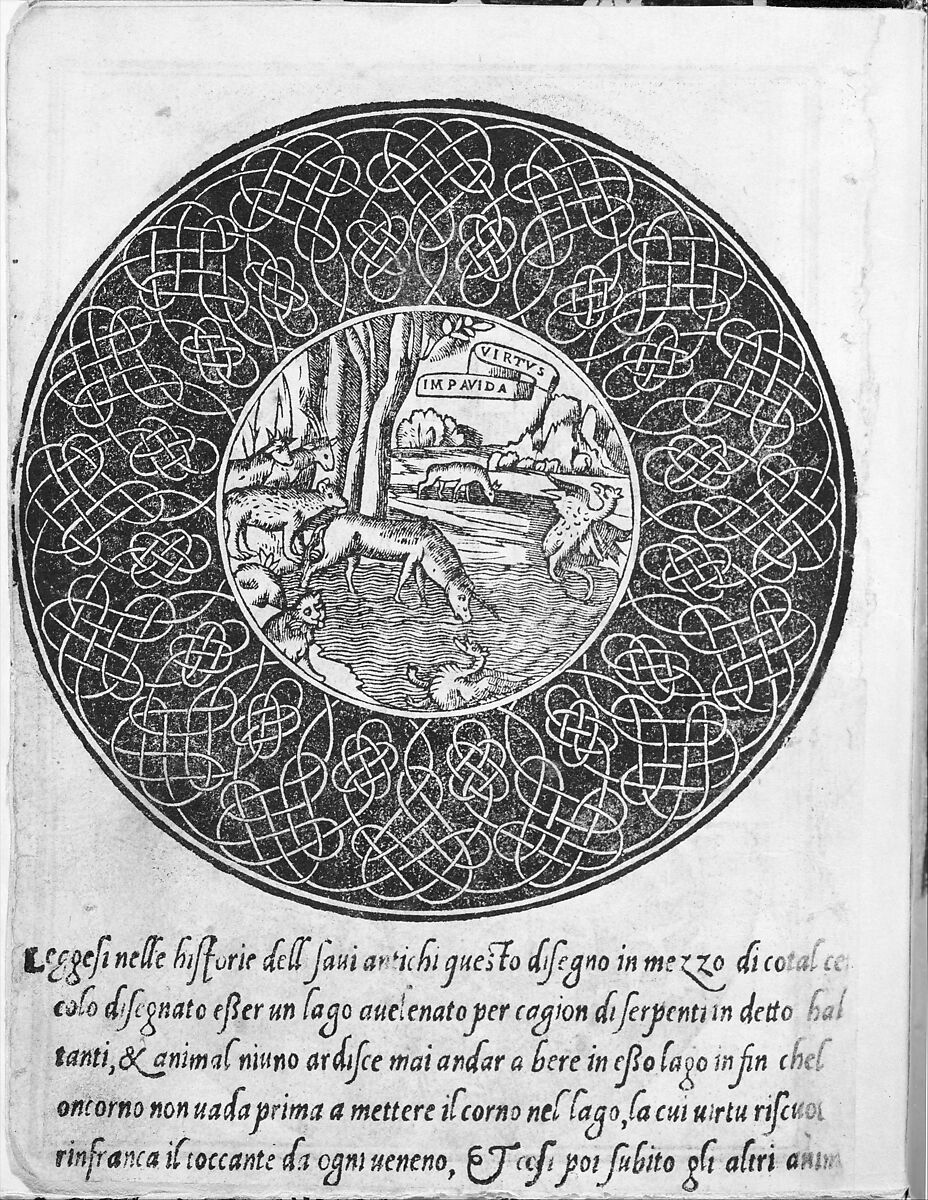 VIRTVS
IMPAVIDA
Leggesi nelle historie dell savi antichi questo disegno in mezzo di cotal
colo disegnato eßer un lago avelenato per cagion di serpenti in detto
tanti, & animal niuno ardisce mai andar a bere in eßo lago in fin chel
oncorno non vada prima a mettere il corno nel lago, la cui virtu
rinfranca il toccante da ogni veneno, Et cosi poi subito gli altri